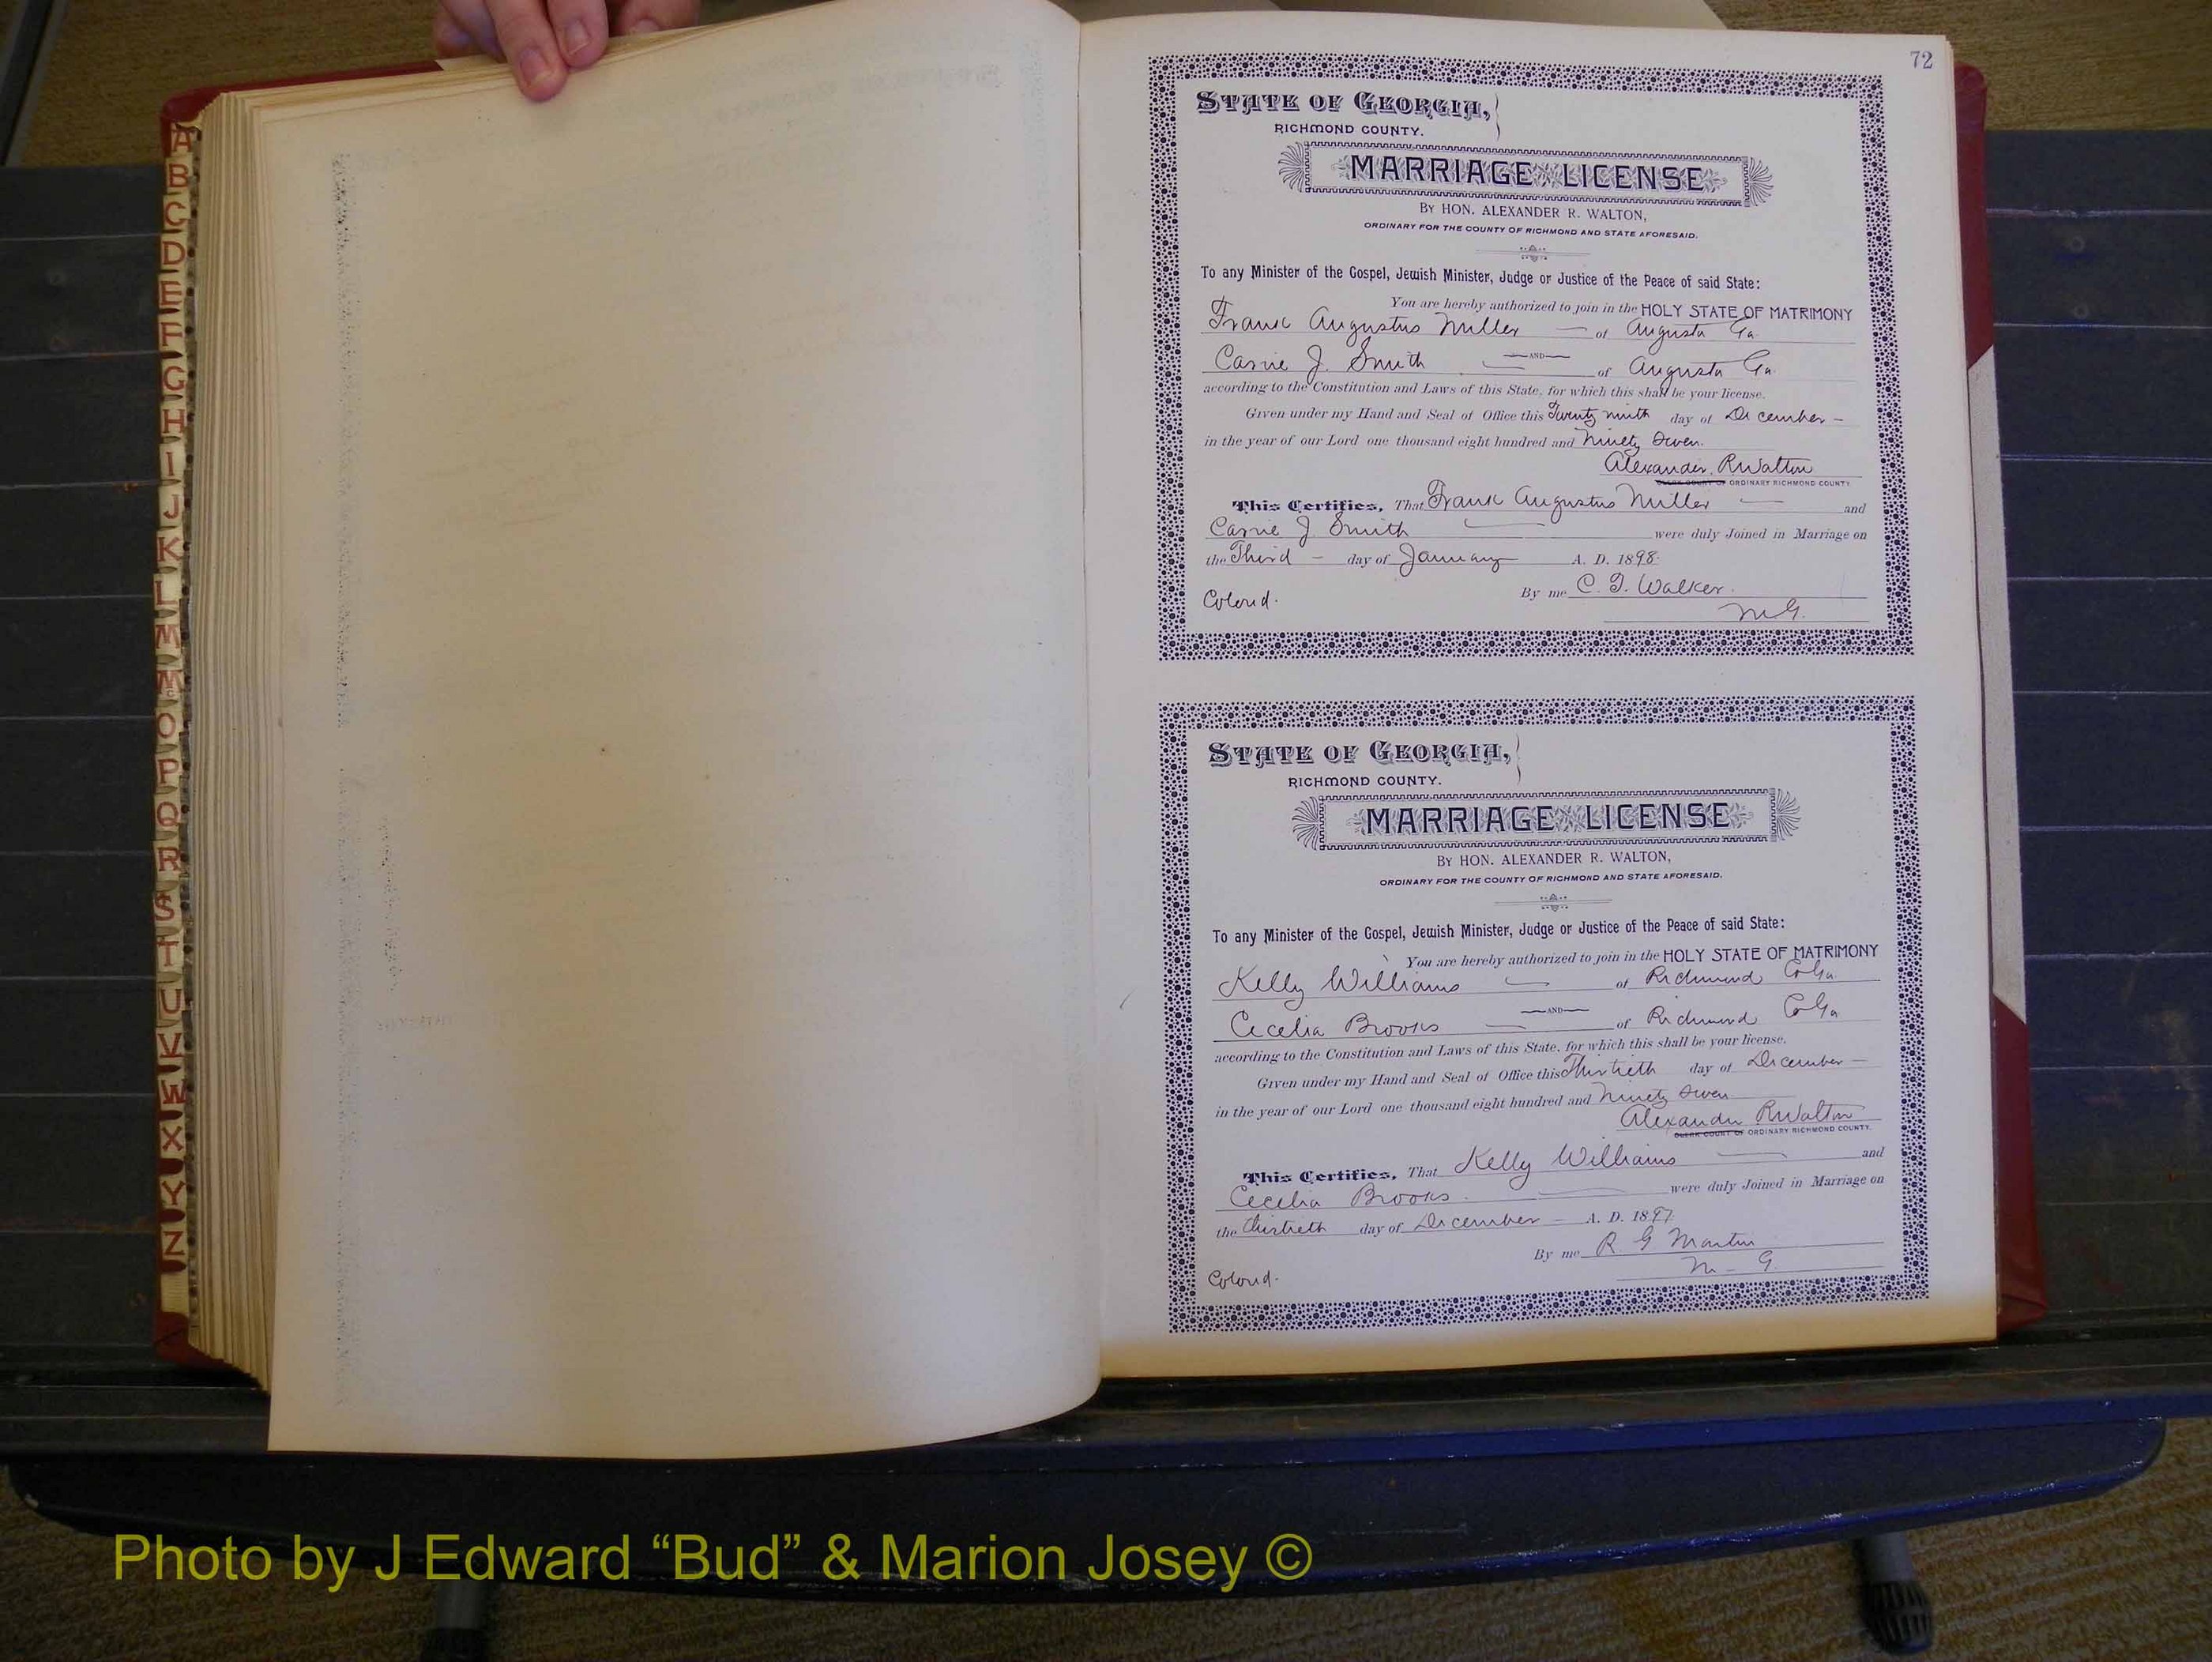 A
B
C
D
E
F
G
H
I
J
K
L
M
Mc
O
P
Q
R
S
T
U
V
W
X
Y
Z
72
STATE OF GEORGIA,
RICHMOND COUNTY.
MARRIAGE LICENSE
BY HON. ALEXANDER R. WALTON,
ORDINARY FOR THE COUNTY OF RICHMOND AND STATE AFORESAID.
To any Minister of the Gospel, Jewish Minister, Judge or Justice of the Peace of said State:
You are hereby authorized to join in the HOLY STATE OF MATRIMONY
Frank Augustus Miller — of Augusta Ga.
—AND—
Carrie J. Smith — of Augusta Ga.
according to the Constitution and Laws of this State, for which this shall be your license.
Given under my Hand and Seal of Office this Twenty ninth day of December -
in the year of our Lord one thousand eight hundred and Ninety Seven.
Alexander R Walton
CLERK COURT OF ORDINARY RICHMOND COUNTY
This Certifies, That Frank Augustus Miller — and
Carrie J. Smith — were duly Joined in Marriage on
the Third - day of January A. D. 1898.
By me C. T. Walker.
Colored. M.G.
STATE OF GEORGIA,
RICHMOND COUNTY.
MARRIAGE LICENSE
BY HON. ALEXANDER R. WALTON,
ORDINARY FOR THE COUNTY OF RICHMOND AND STATE AFORESAID.
To any Minister of the Gospel, Jewish Minister, Judge or Justice of the Peace of said State:
You are hereby authorized to join in the HOLY STATE OF MATRIMONY
Kelly Williams — of Richmond Co Ga.
—AND—
Cecelia Brooks — of Richmond Co Ga
according to the Constitution and Laws of this State, for which this shall be your license.
Given under my Hand and Seal of Office this Thirtieth day of December —
in the year of our Lord one thousand eight hundred and Ninety Seven
Alexander R Walton
CLERK COURT OF ORDINARY RICHMOND COUNTY.
This Certifies, That Kelly Williams — and
Cecelia Brooks. — were duly Joined in Marriage on
the thirtieth day of December — A. D. 1897
By me R. G Martin
M - G.
Colored.
Photo by J Edward “Bud” & Marion Josey ©